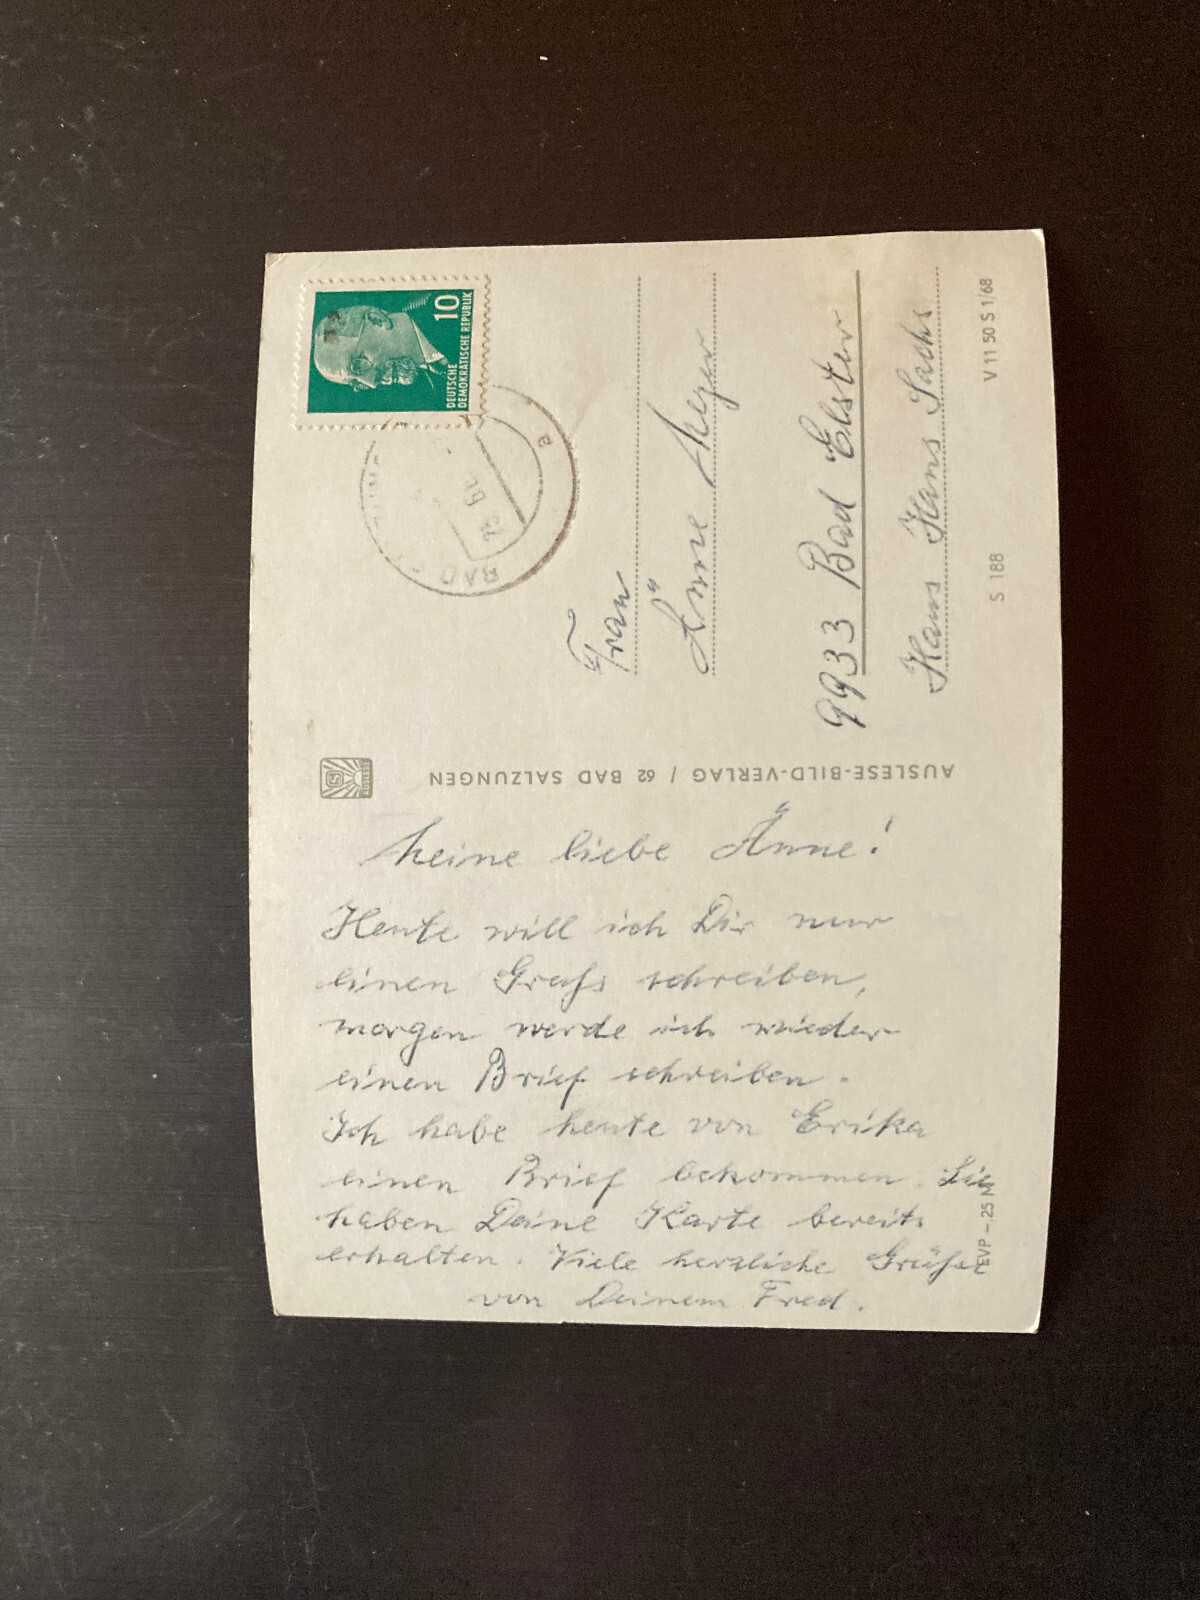 Meine liebe Änne!
Heute will ich Dir nur
einen Gruß schreiben,
morgen werde ich wieder
einen Brief schreiben.
Ich habe heute von Erika
einen Brief bekommen. Sie
haben Deine Karte bereits
erhalten. Viele herzliche Grüße
von Deinem Fred.
EVP -.25 M
AUSLESE-BILD-VERLAG / 62 BAD SALZUNGEN
AUSLESE
10
DEUTSCHE
DEMOKRATISCHE REPUBLIK
BAD
a
Frau
Änne Mezer
9933 Bad Elster
Haus Hans Sachs
S 188
V 11 50 S 1/68